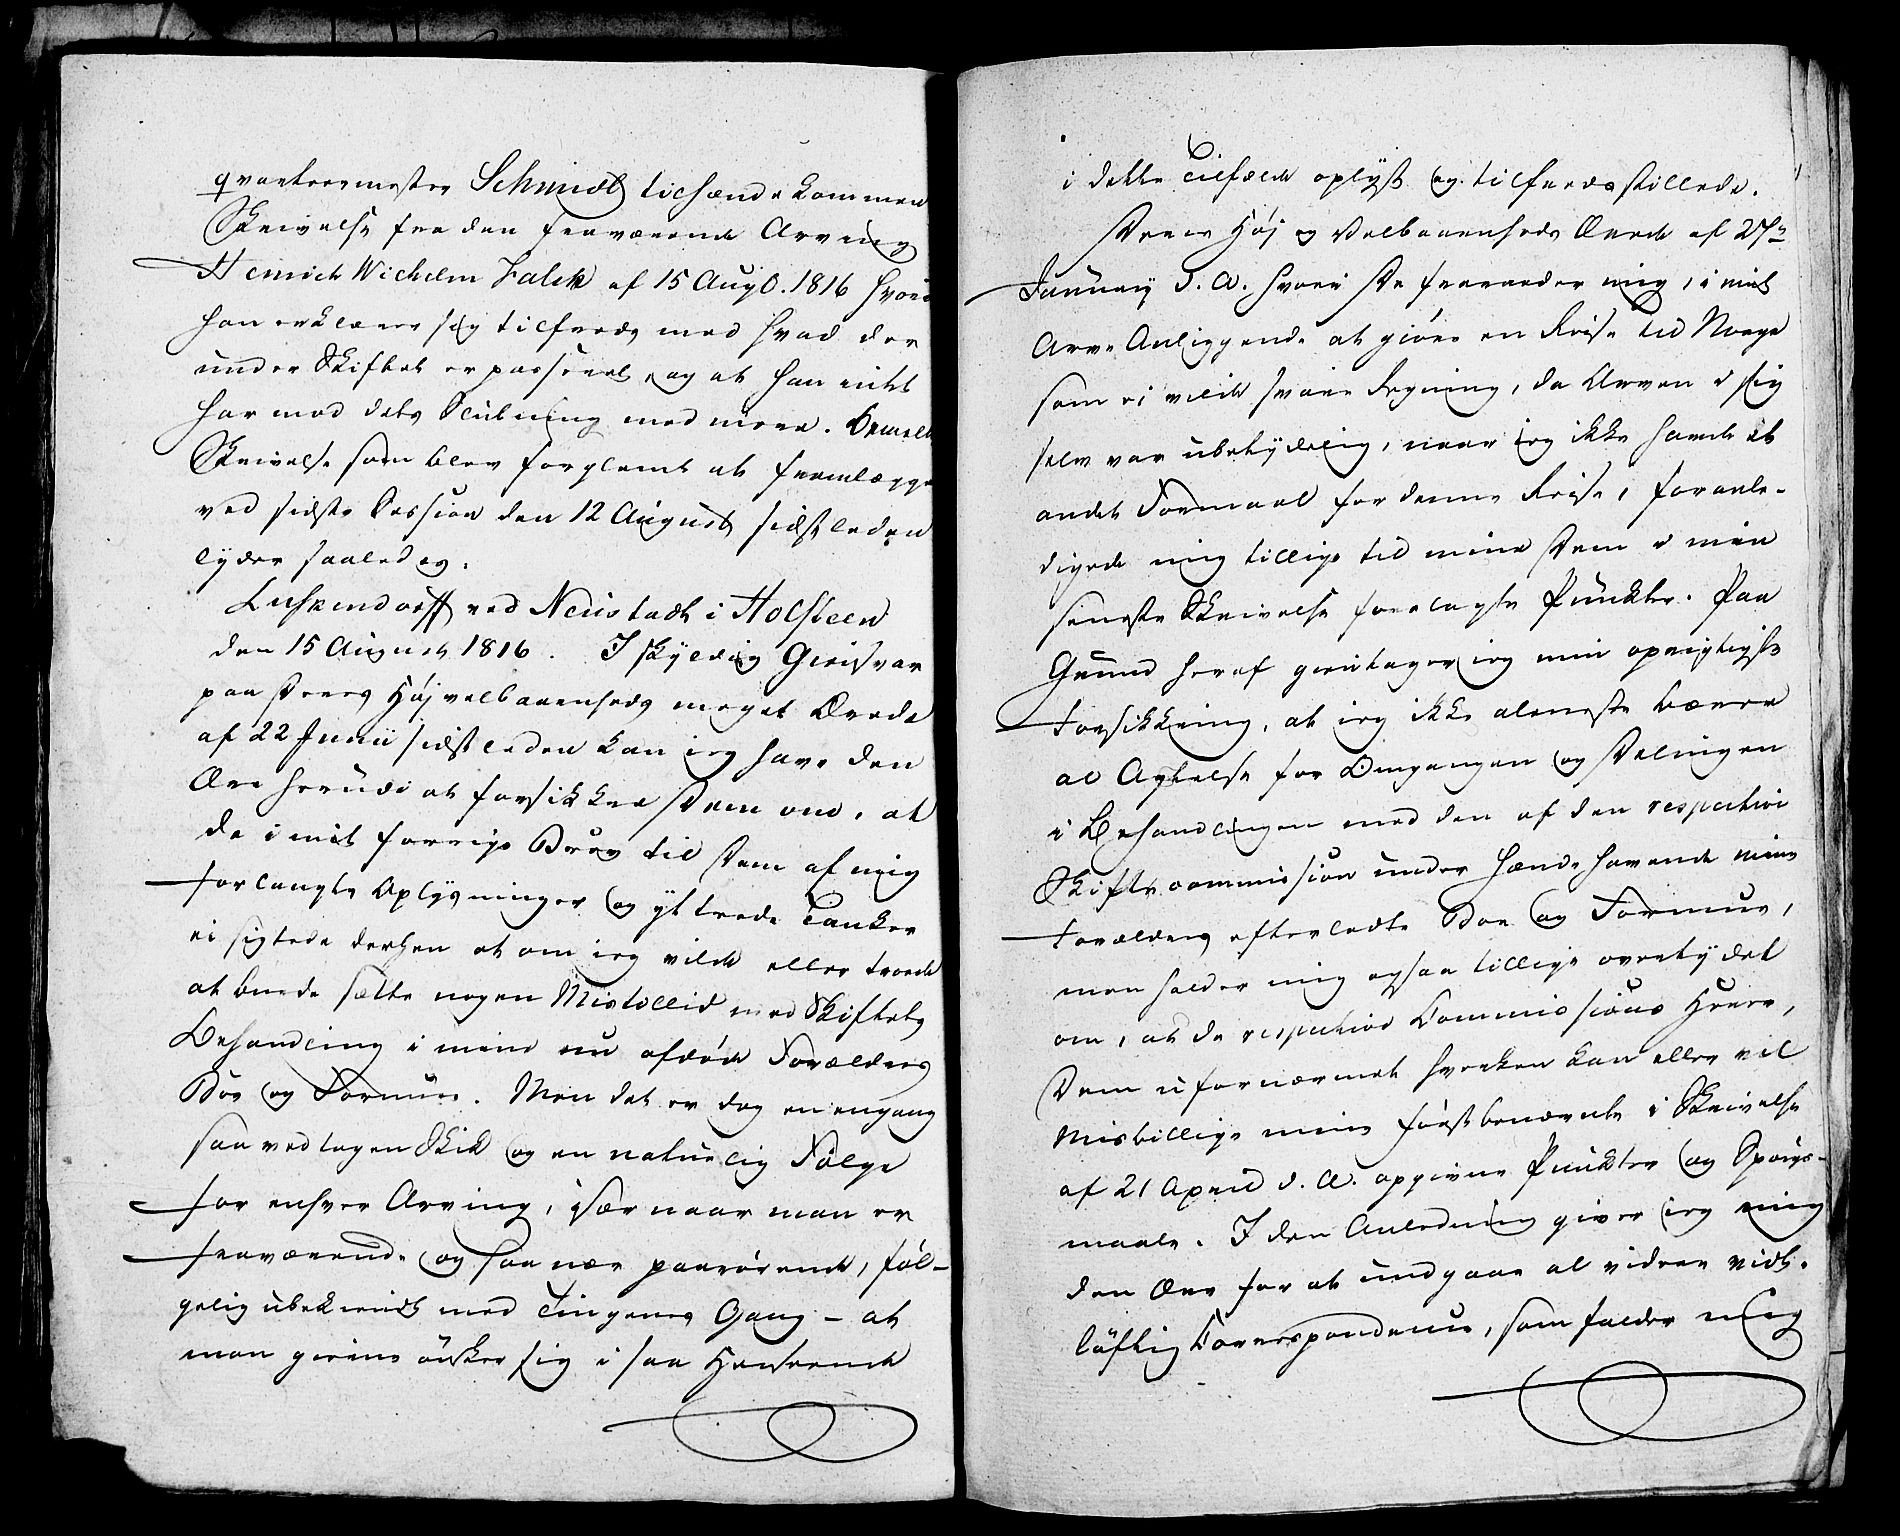 qvarteermester Schmidt tilhænde kommen
Skrivelse fra den fraværende Arving
Henrich Wilhelm Falck af 15 Augs. 1816 hvori
han erklærer sig tilfreds med hvad der
under Skiftet er passeret, og at han intet
har mod dets Slutning med mere. Bemelte
Skrivelse som blev forglemt at fremlægge
ved sidste Session den 12 August sidstleden
lyder saaledes.
Luschendorff ved Neustadt i Holsteen
den 15 August 1816. I skyldig Giensvar
paa Deres Højvelbaarenheds meget Ærede
af 22 Junii sidstleden kan ieg have den
Ære herudi at forsikkre Dem om, at
de i mit forrige Brev til Dem af mig
forlangte Oplysninger og yttrede Tanker
ei sigtede derhen at om ieg vilde eller troede
at burde sætte nogen Mistillid med Skiftets
Behandling i mine nu afdøde Forældres
Boe og Formue. Men det er dog en engang
saa vedtagen Skik og en naturlig Følge
for enhver Arving, især naar man er
fraværende og saa nær paarørende, føl-
gelig ubekiendt med Tingenes Gang - at
man gierne ønsker sig i saa Henseende
i dette Tilfælde oplyst og tilfredsstillede.
Deres Høj og Velbaarenheds Ærede af 27de
January d. A. hvori De fraraader mig, i mit
Arve Anliggende at giøre en Reise til Norge
som ei vilde svare Regning, da Arven i sig
selv var ubetydelig, naar ieg ikke havde et
andet Formaal for denne Reise, foranle-
digede mig tillige til mine Dem i min
seneste Skrivelse forelagte Punkter. Paa
Grund heraf gientager ieg min oprigtigste
Forsikkring, at ieg ikke aleneste bærer
al Agtelse for Omgangen og Delingen
i Behandlingen med den af den respective
Skiftecommission under Hænde havende mine
Forældres efterladte Boe og Formue,
men holder mig ogsaa tillige overtydet
om, at de respective Commissions Herrer,
Dem ufornærmet hverken kan eller vil
Misbillige mine først benævnte i Skrivelse
af 21 April d. A. opgivne Punkter og Spørgs-
maale. I den Anledning giver ieg mig
den Ære for at undgaae al videre vidt-
løftig Correspondence, som falder mig